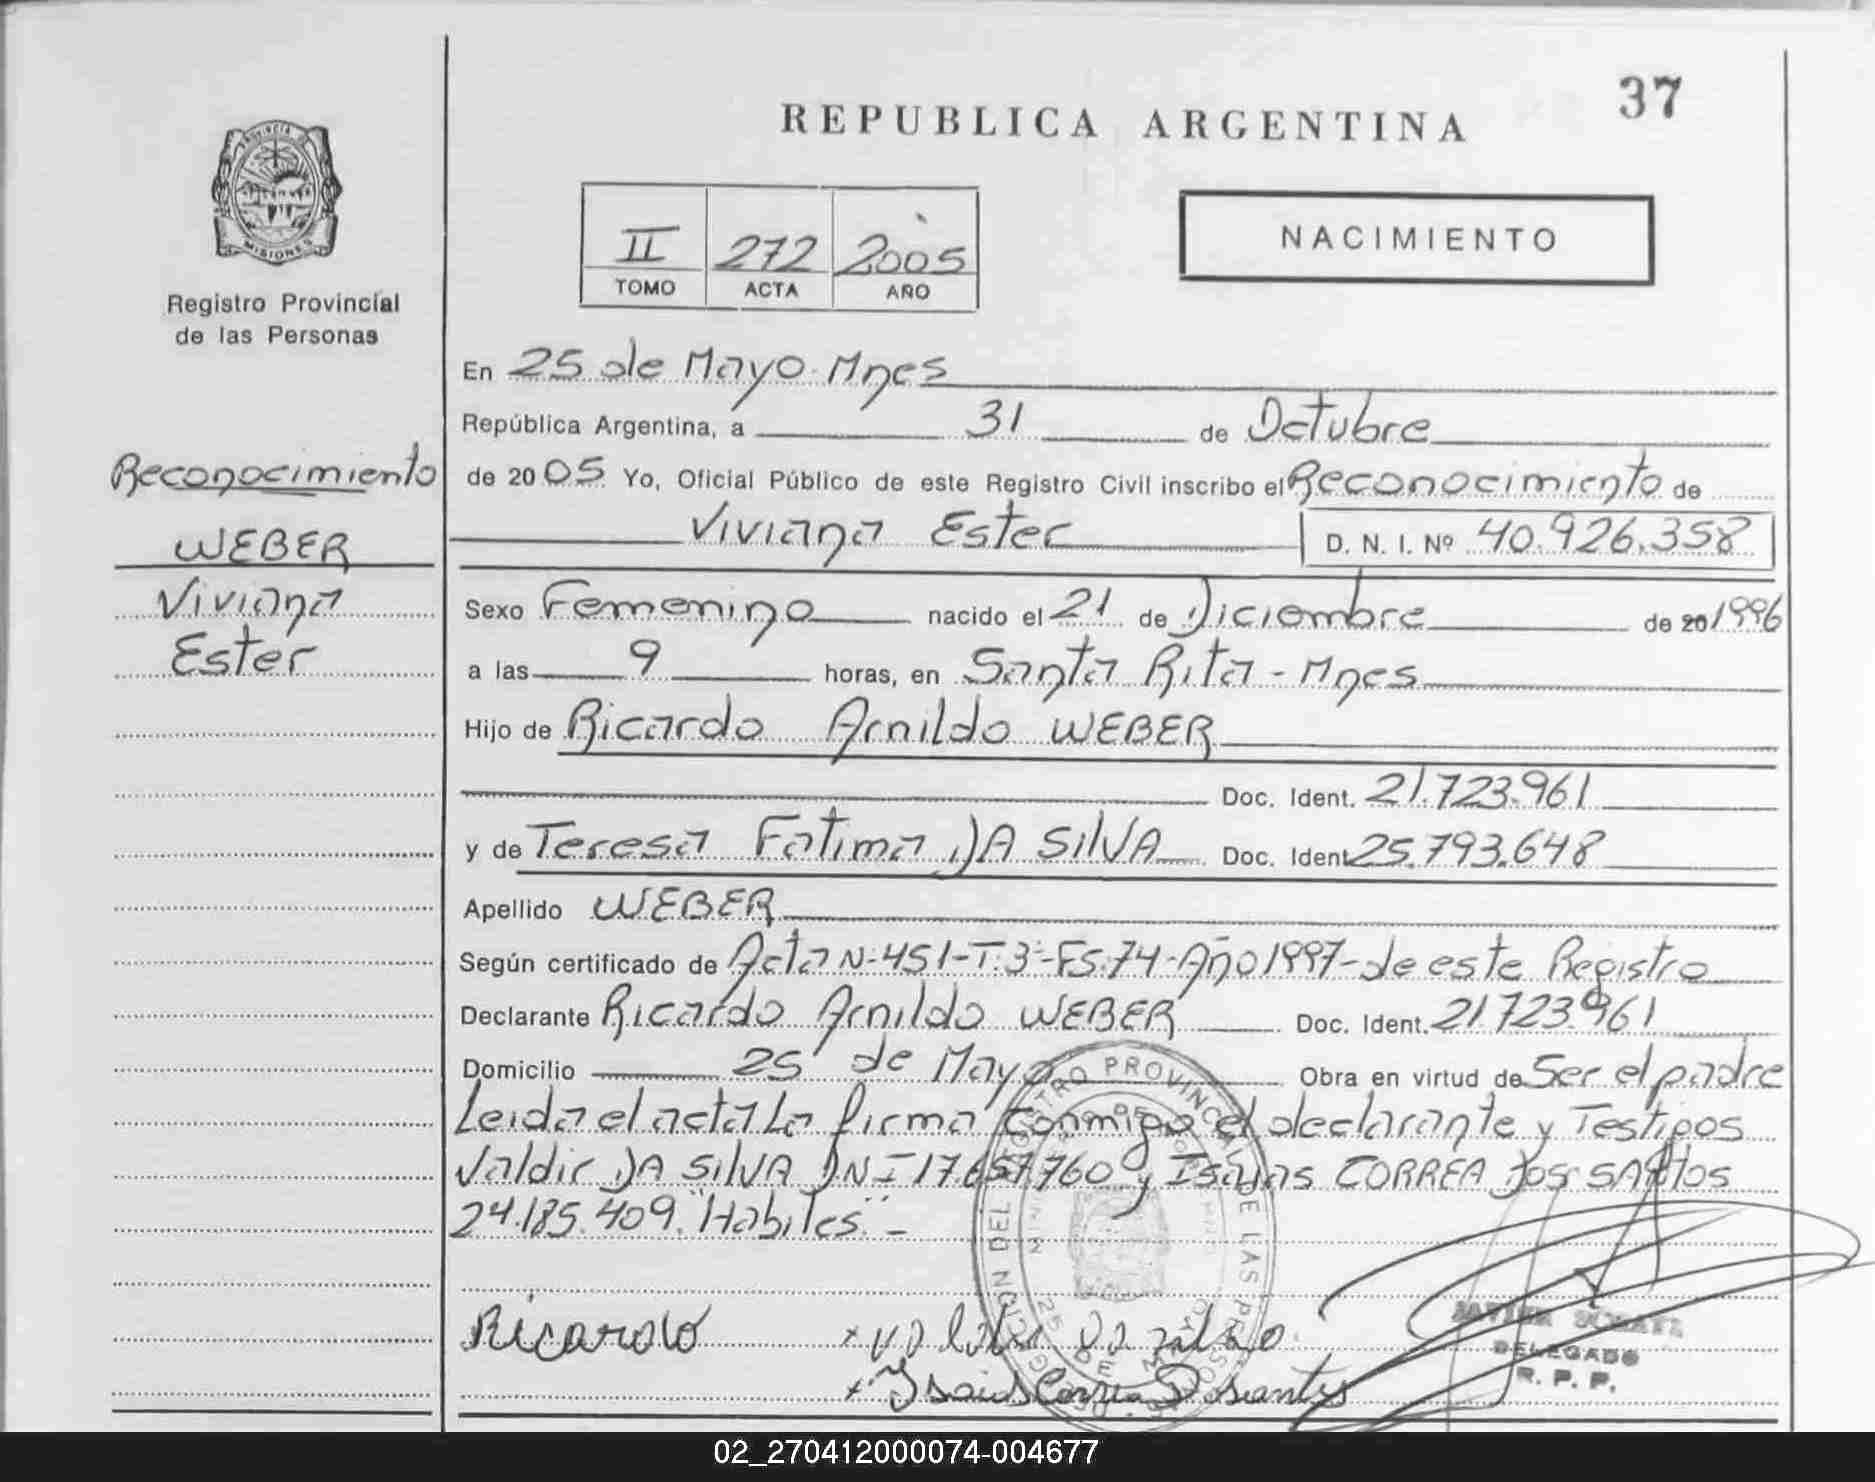 37
REPUBLICA ARGENTINA
PROVINCIA DE
MISIONES
Registro Provincial
de las Personas
II 272 2005
TOMO ACTA AÑO
NACIMIENTO
Reconocimiento
WEBER
Viviana
Ester
En 25 de Mayo Mnes
República Argentina, a 31 de Octubre
de 2005 Yo, Oficial Público de este Registro Civil inscribo el Reconocimiento de
Viviana Ester D. N. I. Nº 40.926.358
Sexo Femenino nacido el 21 de Diciembre de 20 1996
a las 9 horas, en Santa Rita - Mnes
Hijo de Ricardo Arnildo WEBER
Doc. Ident. 21.723.961
y de Teresa Fatima DA SILVA Doc. Ident 25.793.648
Apellido WEBER
Según certificado de Acta N-451-T.3-Fs.74-Año 1997-de este Registro
Declarante Ricardo Arnildo WEBER Doc. Ident. 21.723.961
Domicilio 25 de Mayo Obra en virtud de Ser el padre
Leida el acta La firma Conmigo el declarante y Testigos
Valdir DA SILVA DNI 17.657.760 y Isaias CORREA DOS SANTOS
24.185.409. "Habiles" -
Ricardo
DELEGADO
R. P. P.
02_270412000074-004677